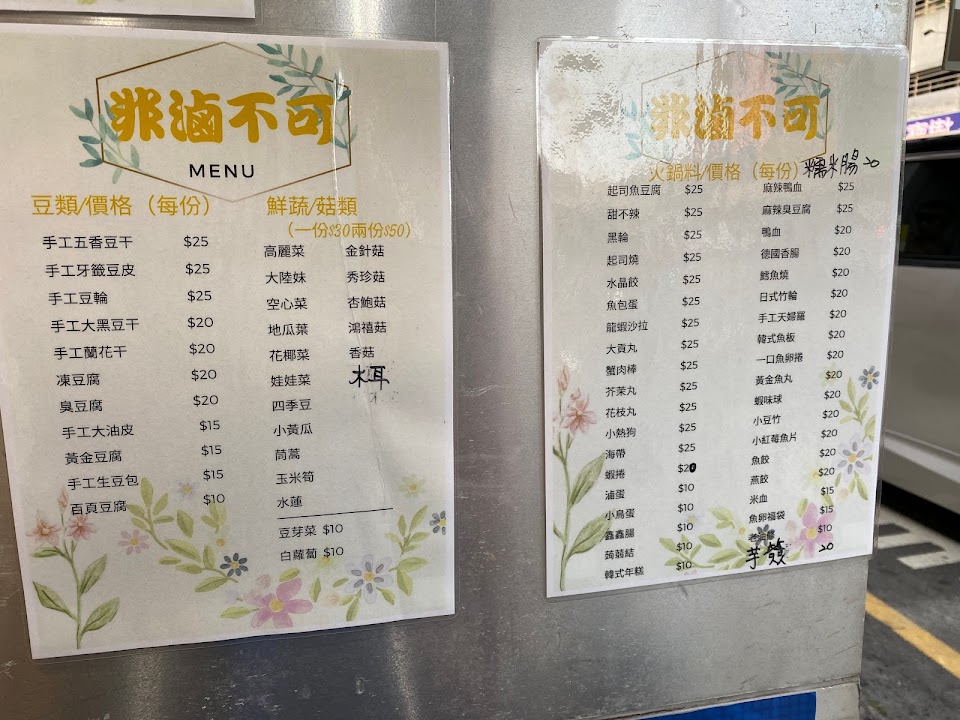 非滷不可
MENU
豆類/價格（每份）
手工五香豆干 $25
手工牙籤豆皮 $25
手工豆輪 $25
手工大黑豆干 $20
手工蘭花干 $20
凍豆腐 $20
臭豆腐 $20
手工大油皮 $15
黃金豆腐 $15
手工生豆包 $15
百頁豆腐 $10
鮮蔬/菇類
（一份$30兩份$50）
高麗菜 金針菇
大陸妹 秀珍菇
空心菜 杏鮑菇
地瓜葉 鴻禧菇
花椰菜 香菇
娃娃菜 木耳
四季豆
小黃瓜
茼蒿
玉米筍
水蓮
豆芽菜 $10
白蘿蔔 $10
非滷不可
火鍋料/價格（每份）
糯米腸 20
起司魚豆腐 $25
甜不辣 $25
黑輪 $25
起司燒 $25
水晶餃 $25
魚包蛋 $25
龍蝦沙拉 $25
大貢丸 $25
蟹肉棒 $25
芥茉丸 $25
花枝丸 $25
小熱狗 $25
海帶 $25
蝦捲 $20
滷蛋 $10
小鳥蛋 $10
鑫鑫腸 $10
蒟蒻結 $10
韓式年糕 $10
麻辣鴨血 $25
麻辣臭豆腐 $25
鴨血 $20
德國香腸 $20
鱈魚燒 $20
日式竹輪 $20
手工天婦羅 $20
韓式魚板 $20
一口魚卵捲 $20
黃金魚丸 $20
蝦味球 $20
小豆竹 $20
小紅莓魚片 $20
魚餃 $20
燕餃 $20
米血 $15
魚卵福袋 $15
$10
芋簽 20